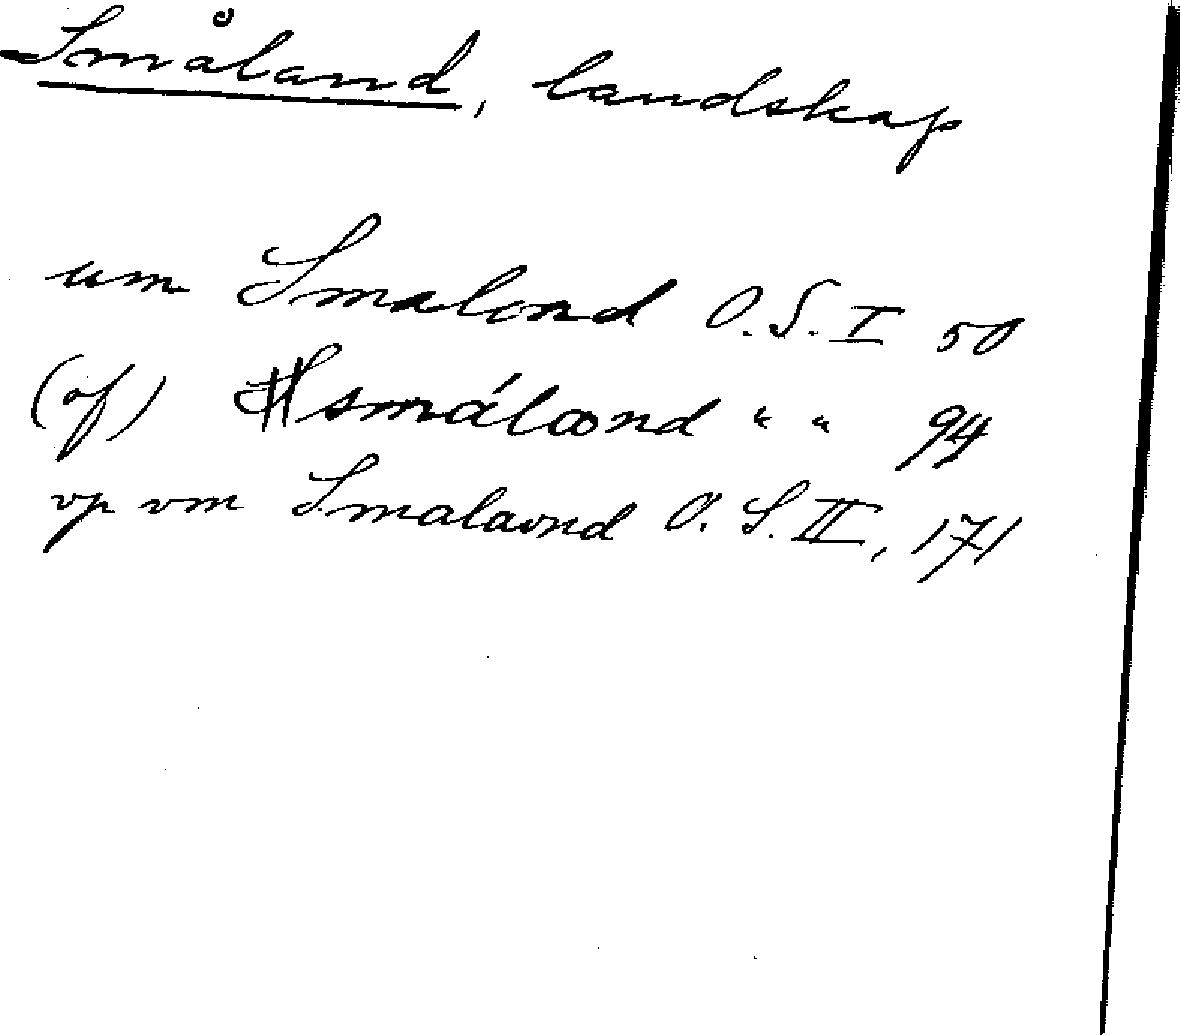 Småland, landskap
um Smalond O.S. I 50
(af) smálond " " 94
vp vm Smalaond O. S. II, 171